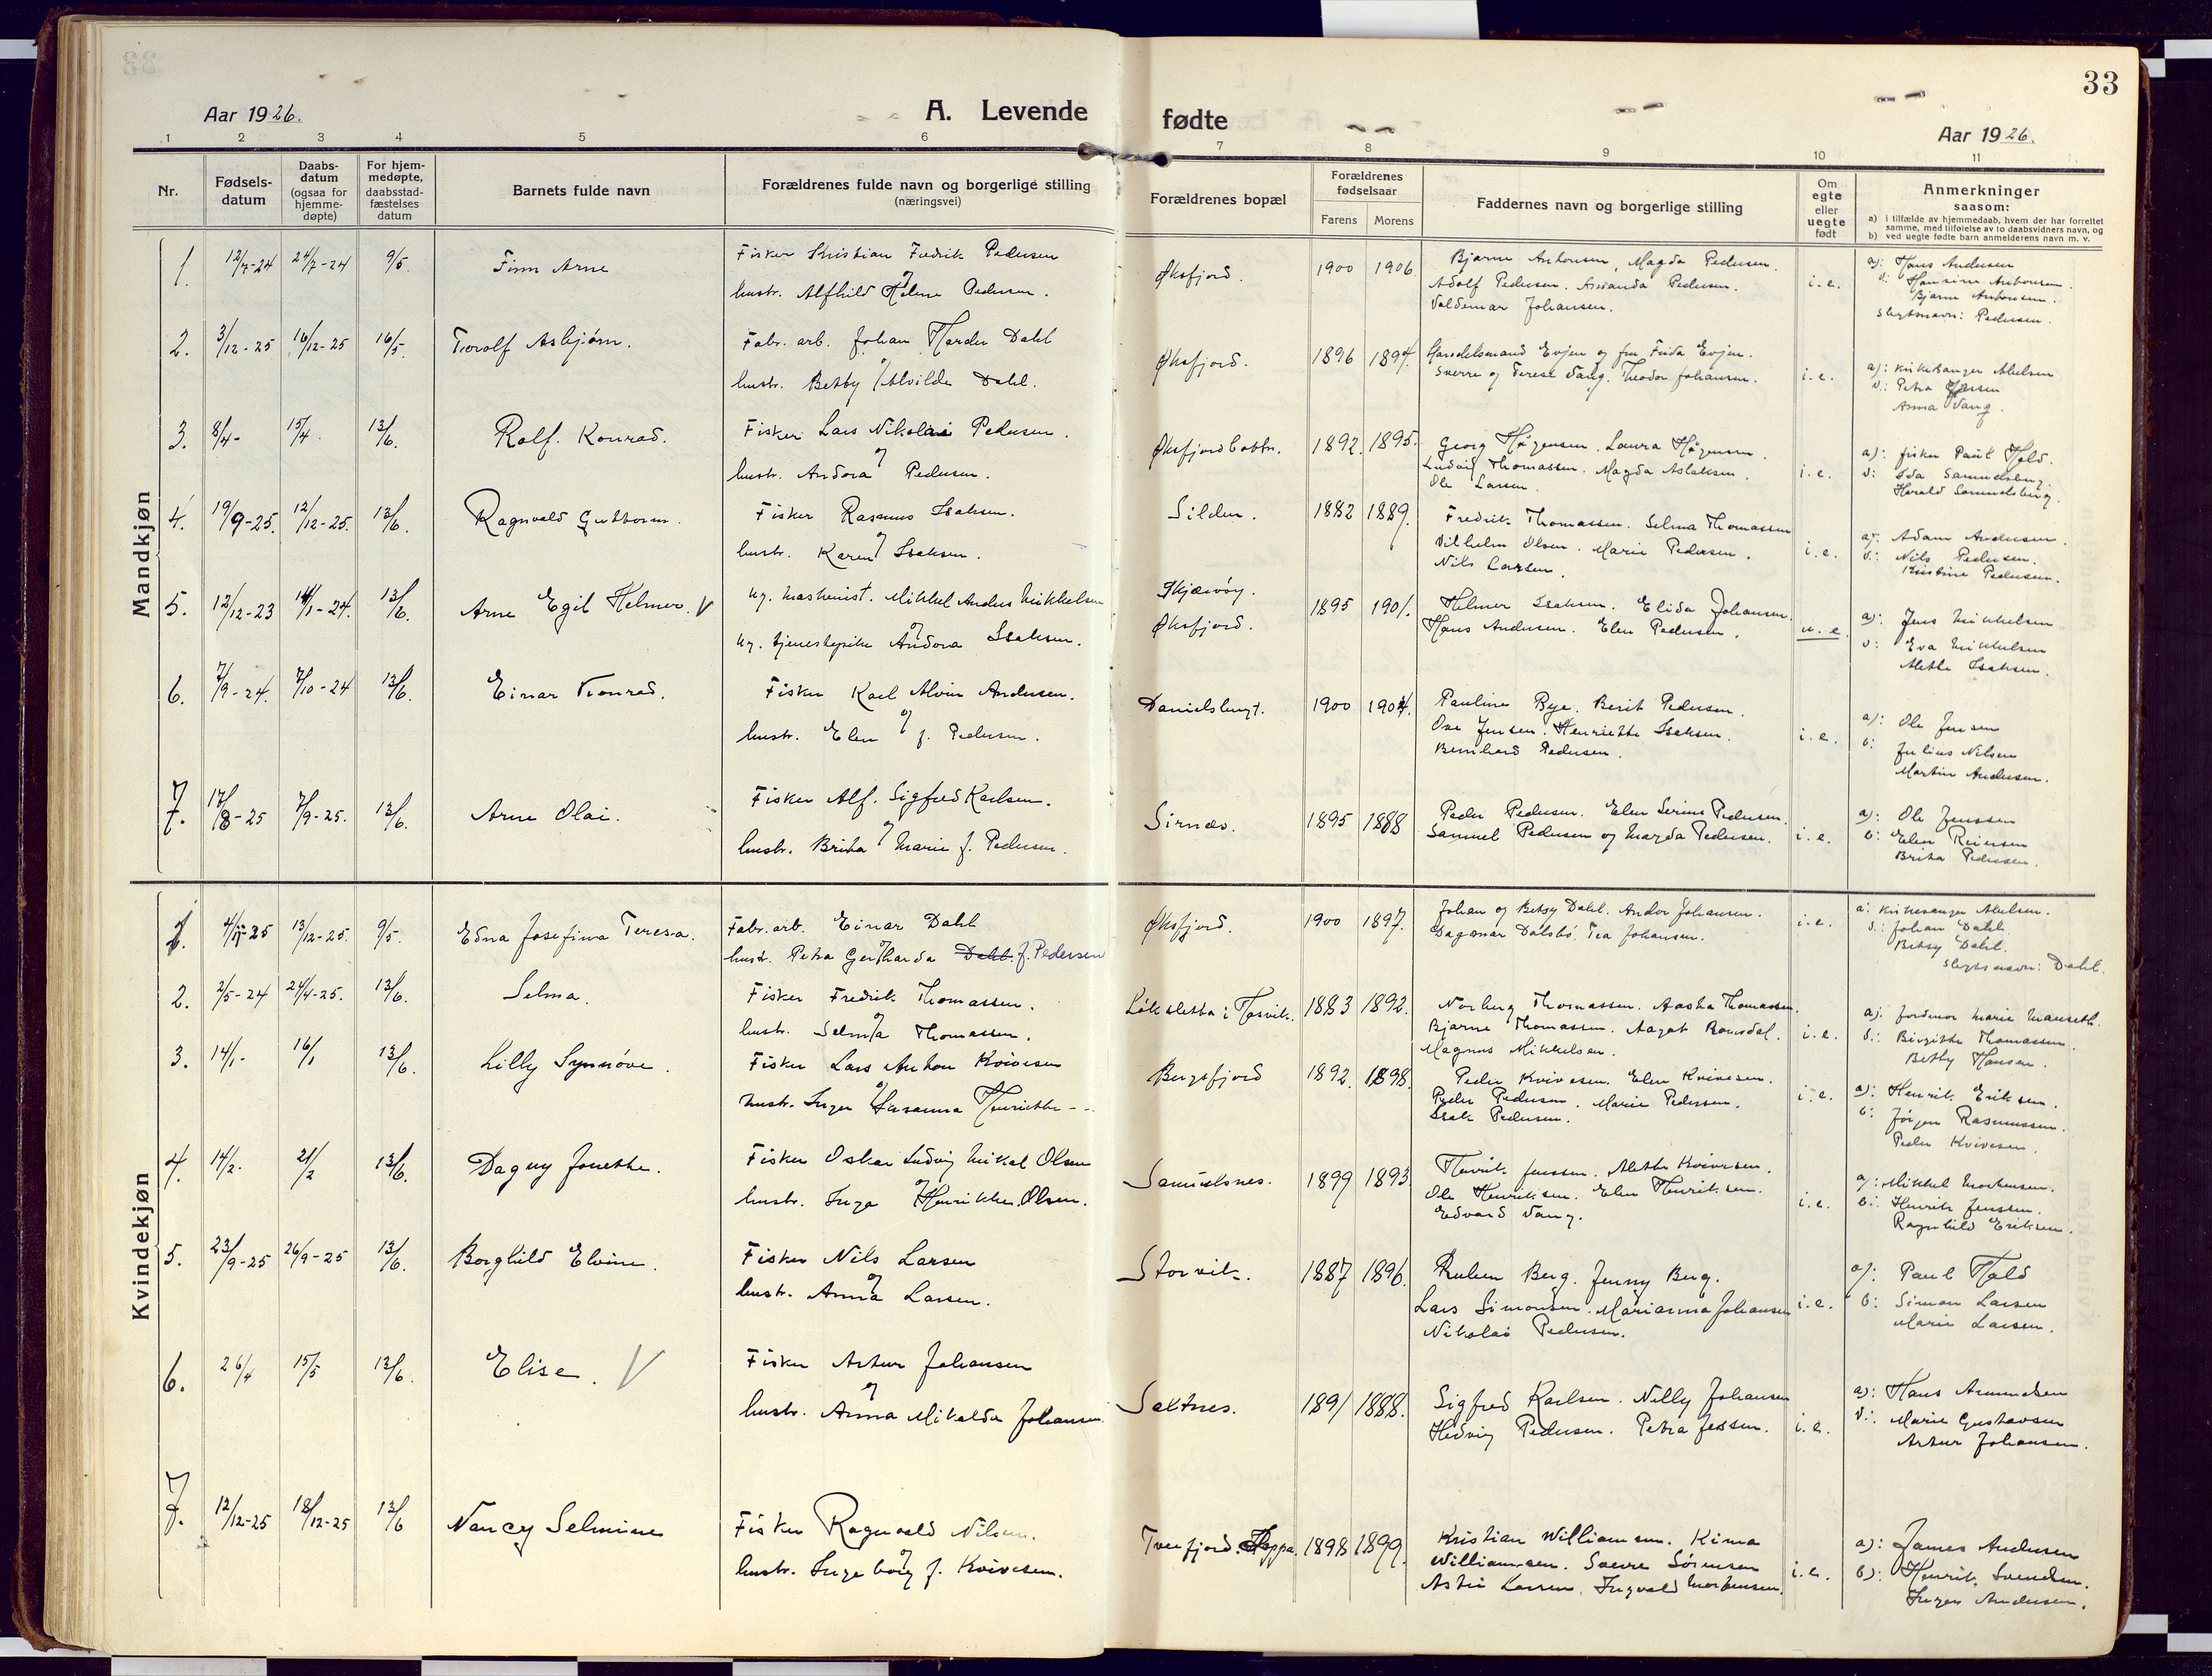 33
Aar 1926.
A. Levende fødte
Aar 1926.
1 2 3 4 5 6 7 8 9 10 11
Nr.
Fødsels-
datum
Daabs-
datum
(ogsaa for
hjemme-
døpte)
For hjem-
medøpte,
daabsstad-
fæstelses
datum
Barnets fulde navn
Forældrenes fulde navn og borgerlige stilling
(næringsvei)
Forældrenes bopæl
Forældrenes
fødselsaar
Farens Morens
Faddernes navn og borgerlige stilling
Om
egte
eller
uegte
født
Anmerkninger
saasom:
a) i tilfælde av hjemmedaab, hvem der har forrettet
samme, med tilføielse av to daabsvidners navn, og
b) ved uegte fødte barn anmelderens navn m. v.
Mandkjøn
1. 12/7-24 24/7-24 9/5. Finn Arne
Fisker Kristian Fredrik Pedersen
og
hustr. Alfhild Helene Pedersen.
Øksfjord. 1900 1906.
Bjarne Antonsen, Magda Pedersen.
Adolf Pedersen. Amanda Pedersen.
Valdemar Johansen.
i.e.
a): Hans Andersen
v: Hansine Antonsen.
Bjarne Antonsen.
slegtsnavn: Pedersen.
2. 3/12-25 16/12-25 16/5. Torolf Asbjørn.
Fabr. arb. Johan Harder Dahl
og
hustr. Betsy Alvilde Dahl.
Øksfjord. 1896 1894.
Handelsmand Evjen og fru Frida Evjen.
Sverre og Terese Vang. Theodor Johansen.
i.e.
a): kirkesanger Abelsen
v: Petra Jessen
Anna Vang.
3. 8/4- 15/4. 13/6. Rolf. Konrad.
Fisker Lars Nikolai Pedersen.
og
hustr. Andora Pedersen.
Øksfjordbottn. 1892. 1895.
Georg Høgensen. Laura Høgensen.
Ludvig Thomassen. Magda Aslaksen.
Ole Larsen.
i.e.
a): fisker Paul Hold.
v: Ida Samuelsberg.
Harald Samuelsberg.
4. 19/9-25. 12/12-25. 13/6. Ragnvald Guttorm.
Fisker Rasmus Isaksen.
og
hustr. Karen Isaksen.
Silden. 1882 1889.
Fredrik Thomassen. Selma Thomassen
Vilhelm Olsen. Marie Pedersen.
Nils Larsen.
i.e.
a): Adam Andersen.
v: Nils Pedersen.
Kristine Pedersen.
5. 12/12-23 14/1-24. 13/6. Arne Egil Helmer. V
ug. maskinist. Mikkel Anders Mikkelsen
og
ug. tjenestepike Andora Isaksen.
Skjærvøy.
Øksfjord.
1895 1901.
Helmer Isaksen. Elida Johansen.
Hans Andersen. Elen Pedersen.
u.e.
a): Jens Mikkelsen
v: Eva Mikkelsen
Alette Isaksen.
6. 7/9-24. 7/10-24 13/6. Einar Konrad.
Fisker Karl Alvin Andersen.
og
hustr. Elen f. Pedersen.
Danielsbugt. 1900 1904.
Pauline Bye. Berit Pedersen.
Ove Jensen. Henriette Isaksen.
Bernhard Pedersen.
i.e.
a): Ole Jensen
v: Julius Nilsen
Martin Andersen.
7. 17/8-25 7/9-25. 13/6. Arne Olai.
Fisker Alf. Sigfred Karlsen.
og
hustr. Brita Marie f. Pedersen.
Sirnæs. 1895 1888
Peder Pedersen. Elen Serine Pedersen.
Samuel Pedersen og Magda Pedersen.
i.e.
a): Ole Jenssen
v: Elen Reiersen
Brita Pedersen.
Kvindekjøn
1. 4/11-25 13/12-25. 9/5. Edna Josefina Teresa.
Fabr. arb. Einar Dahl
og
hustr. Petra Gerharda Dahl. f. Pedersen
Øksfjord. 1900 1897.
Johan og Betsy Dahl. Andor Johansen.
Dagmar Dalsbø. Tea Johansen.
i.e.
a: kirkesanger Abelsen.
v: Johan Dahl.
Betsy Dahl.
slegtsnavn: Dahl.
2. 2/5-24 24/4-25. 13/6. Selma.
Fisker Fredrik Thomassen.
og
hustr. Selma Thomassen.
Löksletta i Tasvik. 1883 1892.
Norberg Thomassen. Aasta Thomassen.
Bjarne Thomassen. Aagot Romsdal.
Magnus Mikkelsen.
i.e.
a): jordmor Marie Manseth.
v: Birgitte Thomassen.
Betsy Hansen.
3. 14/1- 16/1 13/6. Lilly Synnöve.
Fisker Lars Anton Kvivesen
og
hustr. Inger Susanna Henriette - -
Bergsfjord 1892. 1898.
Peder Kvivesen. Elen Kvivesen.
Peder Pedersen. Marie Pedersen.
Isak Pedersen.
i.e.
a): Henrik Eriksen.
v: Jörgen Rasmussen.
Peder Kvivesen.
4. 14/2. 21/2 13/6. Dagny Jonette.
Fisker Oskar Ludvig Mikal Olsen
og
hustr. Inga Henrikke Olsen.
Samuelsnes. 1899 1893.
Henrik Jenssen. Alette Kvivesen.
Ole Henriksen. Elen Henriksen.
Edvard Vang.
i.e.
a): Mikkel Mortensen.
v: Henrik Jenssen.
Ragnhild Eriksen.
5. 23/9-25 26/9-25 13/6. Borghild Elvine.
Fisker Nils Larsen
og
hustr. Anna Larsen.
Storvik. 1887 1896.
Ruben Berg. Jenny Berg.
Lars Simonsen. Marianna Johansen
Nikolai Pedersen.
i.e.
a): Paul Hold
v: Simon Larsen
Marie Larsen.
6. 26/4 15/5 13/6. Elise. V
Fisker Artur Johansen
og
hustr. Anna Mikalda Johansen.
Saltnes. 1891 1888.
Sigfred Karlsen. Nelly Johansen
Hedvig Pedersen. Petra Jessen.
i.e.
a): Hans Amundsen
v: Marie Gustavsen
Artur Johansen.
7. 12/12-25 18/12-25 13/6 Nancy Selmine
Fisker Ragnvald Nilsen.
og
hustr. Ingeborg f. Kvivesen.
Tverfjord. Loppa. 1898 1899.
Kristian Williamsen. Kima
Williamsen. Sverre Sörensen
Astri Larsen. Ingvald Mortensen.
i.e.
a): James Andersen
v): Henrik Svendsen.
Inger Andersen.